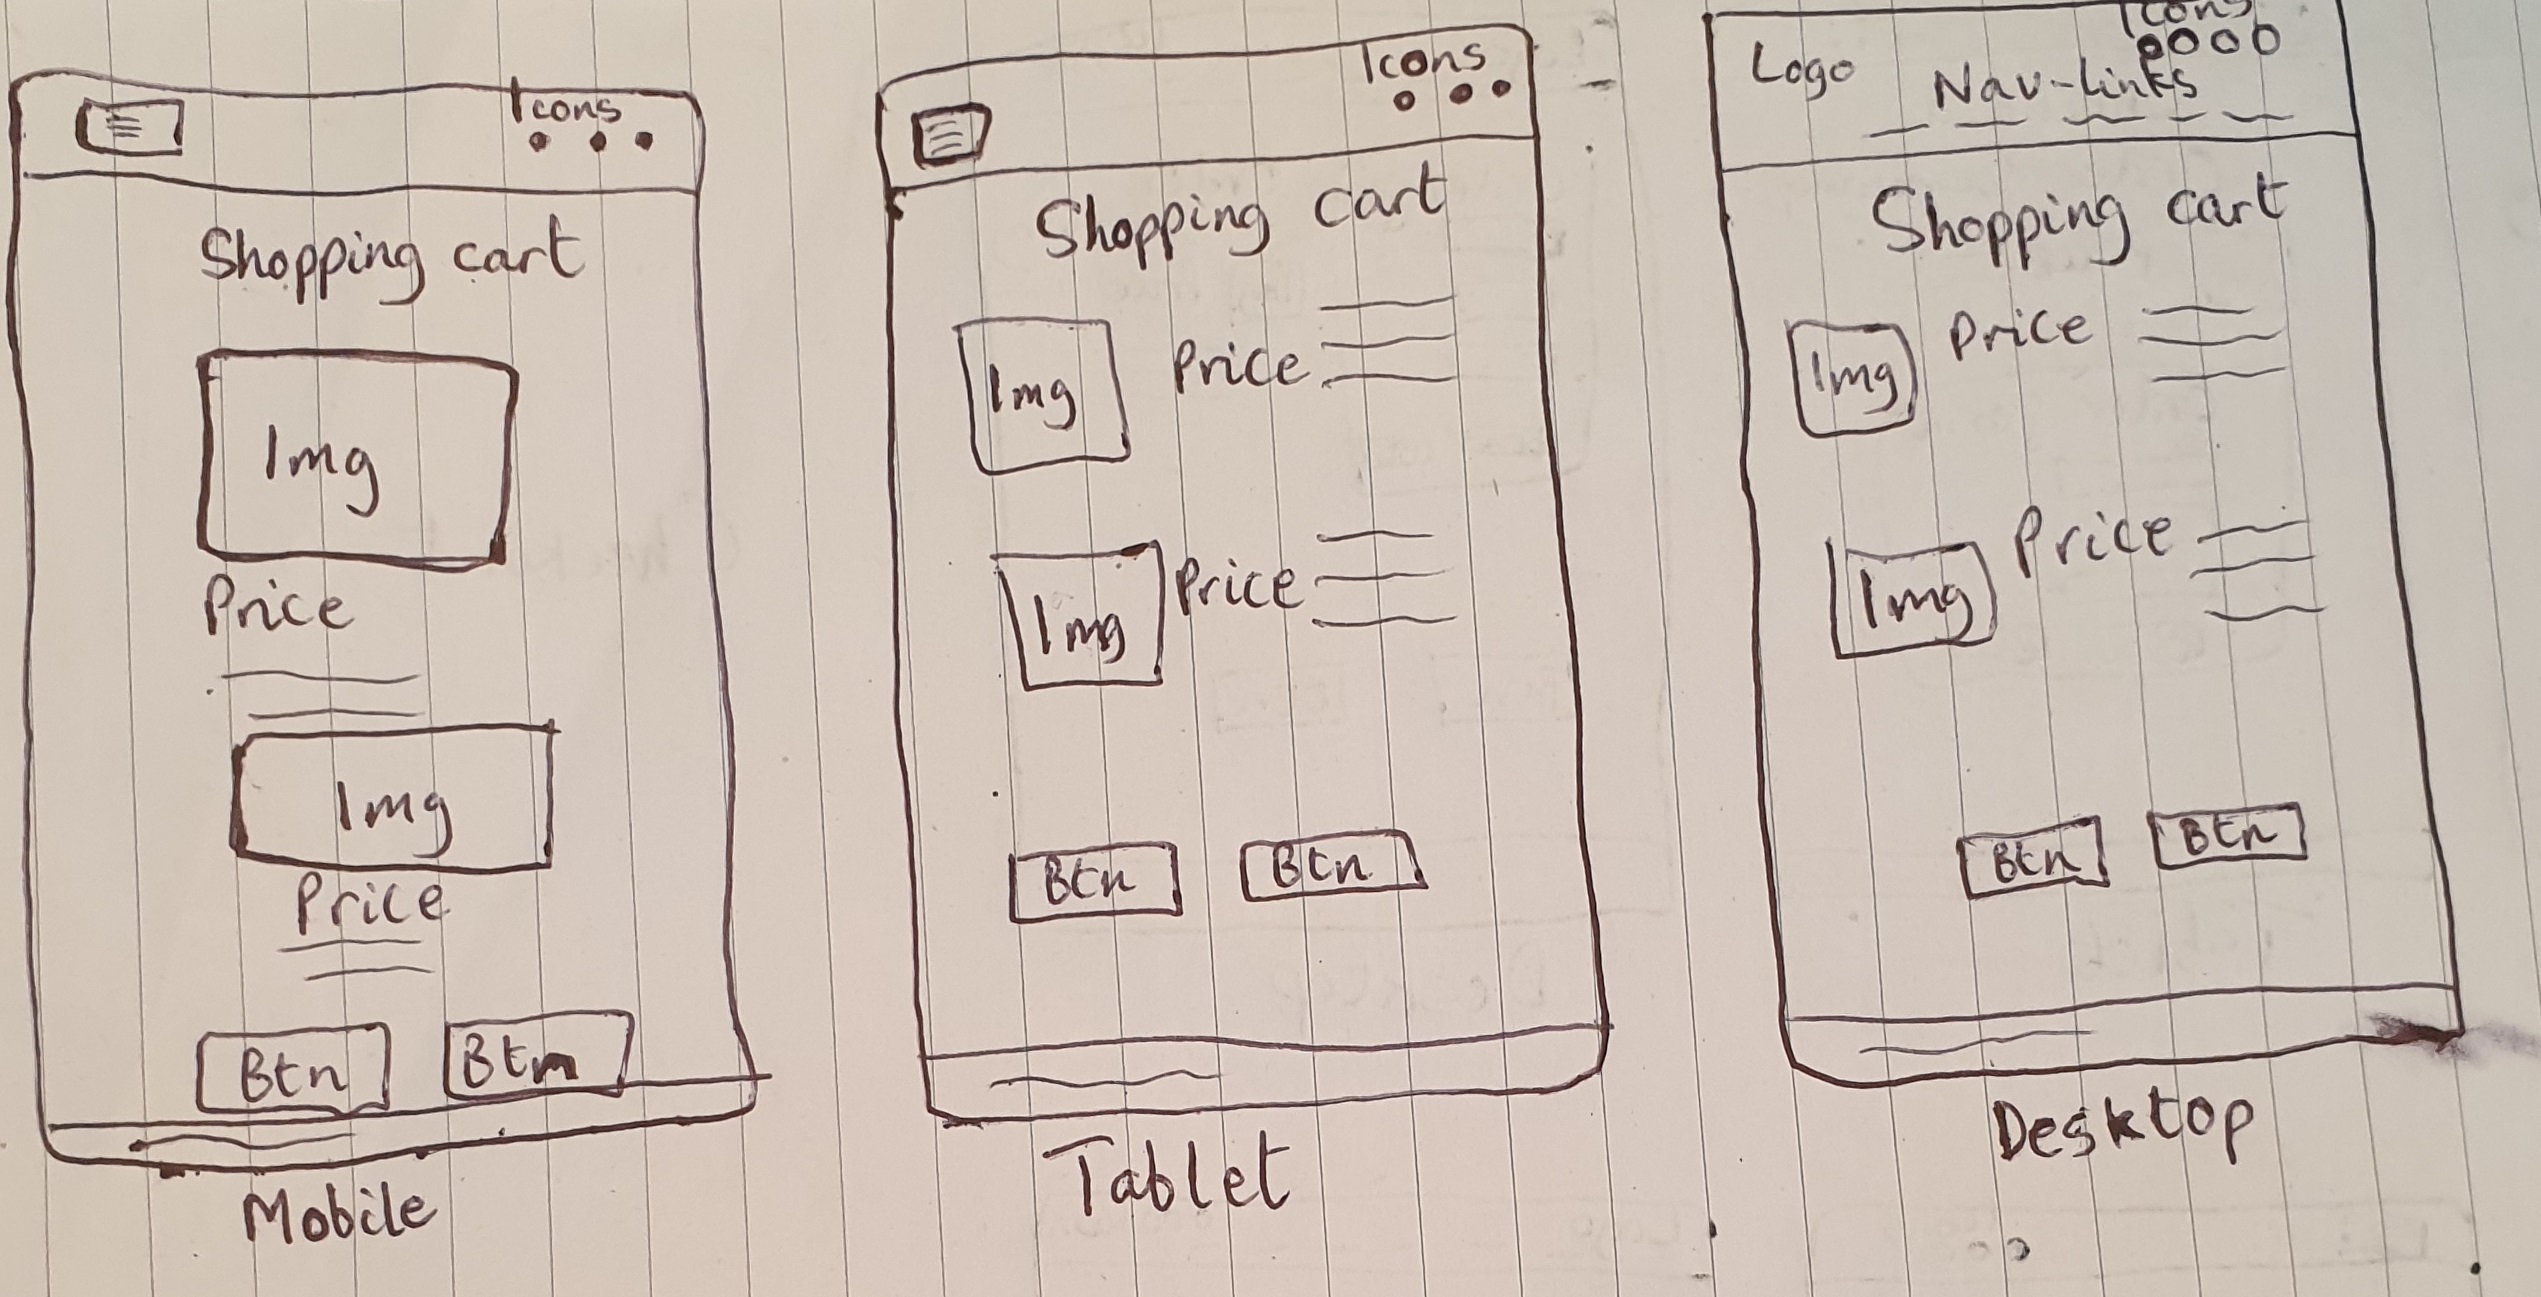 Icons
Shopping cart
Img
Price
Img
Price
Btn
Btn
Mobile
Icons
Shopping cart
Img
Price
Img
Price
Btn
Btn
Tablet
Icons
Logo
Nav-links
Shopping cart
Img
Price
Img
Price
Btn
Btn
Desktop